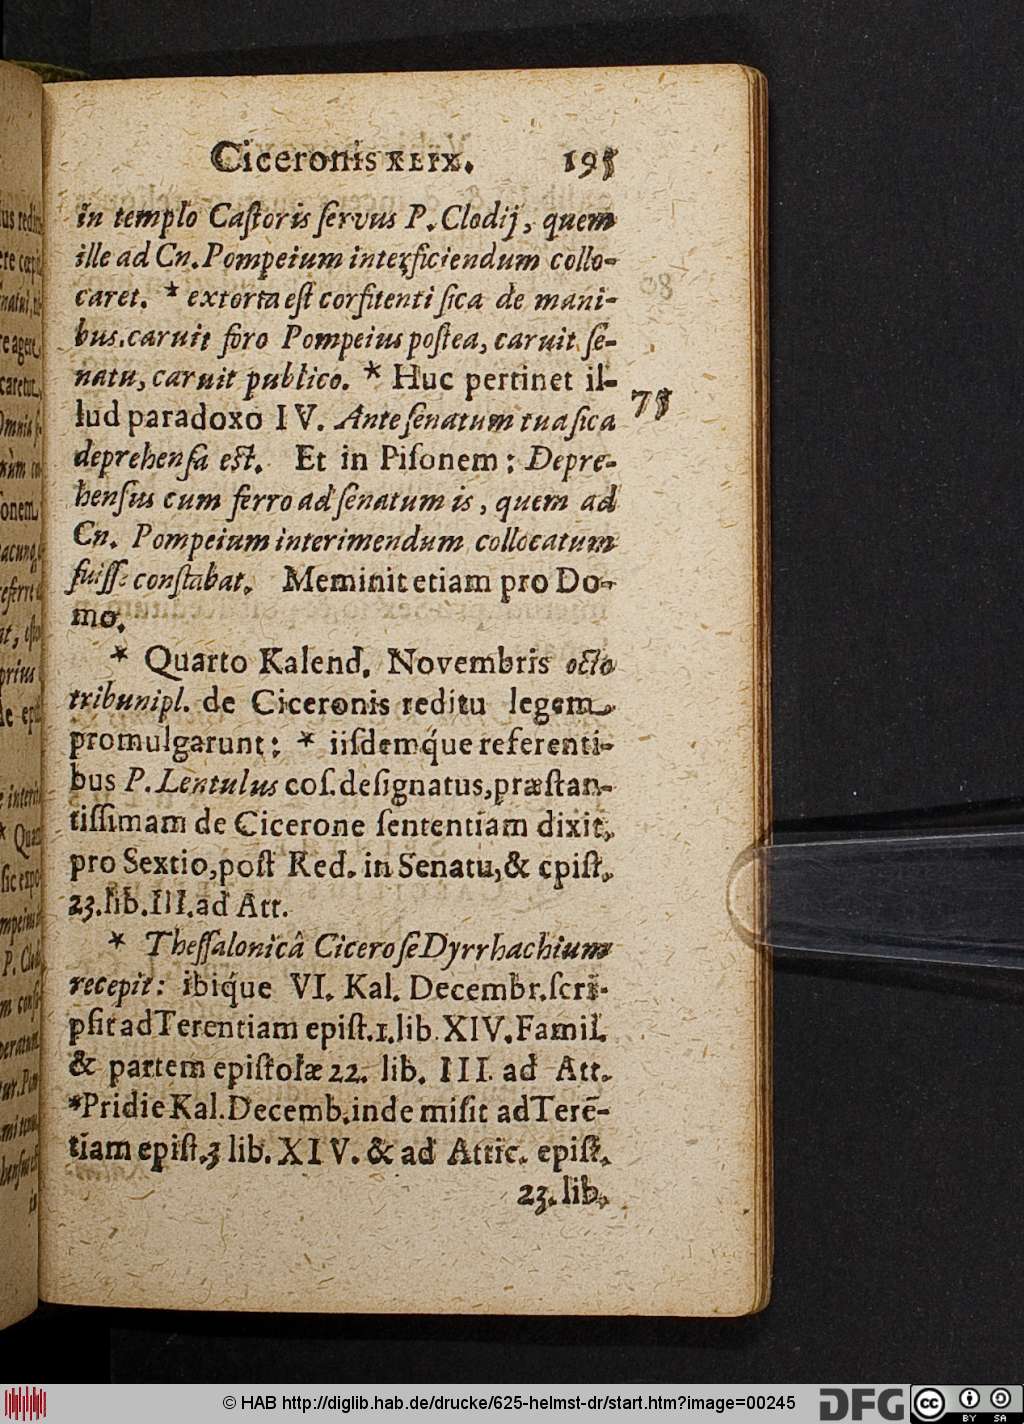 Ciceronis XLIX. 195
in templo Caſtoris ſervus P. Clodij, quem
ille ad Cn. Pompeium interficiendum collo-
caret. * extorta eſt confitenti ſica de mani-
bus. caruit foro Pompeius poſtea, caruit ſe-
natu, caruit publico. * Huc pertinet il-
lud paradoxo IV. Ante ſenatum tua ſica
75
deprehenſa eſt. Et in Piſonem: Depre-
henſus cum ferro ad ſenatum is, quem ad
Cn. Pompeium interimendum collocatum
fuiſſe conſtabat. Meminit etiam pro Do-
mo.
* Quarto Kalend. Novembris octo
tribuni pl. de Ciceronis reditu legem
promulgarunt: * iiſdemq́ue referenti-
bus P. Lentulus coſ. deſignatus, præſtan-
tiſſimam de Cicerone ſententiam dixit,
pro Sextio, poſt Red. in Senatu, & epiſt.
23. lib. III. ad Att.
* Theſſalonicâ Cicero ſe Dyrrhachium
recepit: ibiq́ue VI. Kal. Decembr. ſcri-
pſit ad Terentiam epiſt. 1. lib. XIV. Famil.
& partem epiſtolæ 22. lib. III. ad Att.
* Pridie Kal. Decemb. inde miſit ad Terē-
tiam epiſt. 3 lib. XIV. & ad Attic. epiſt.
23. lib.
© HAB http://diglib.hab.de/drucke/625-helmst-dr/start.htm?image=00245
DFG
cc BY SA